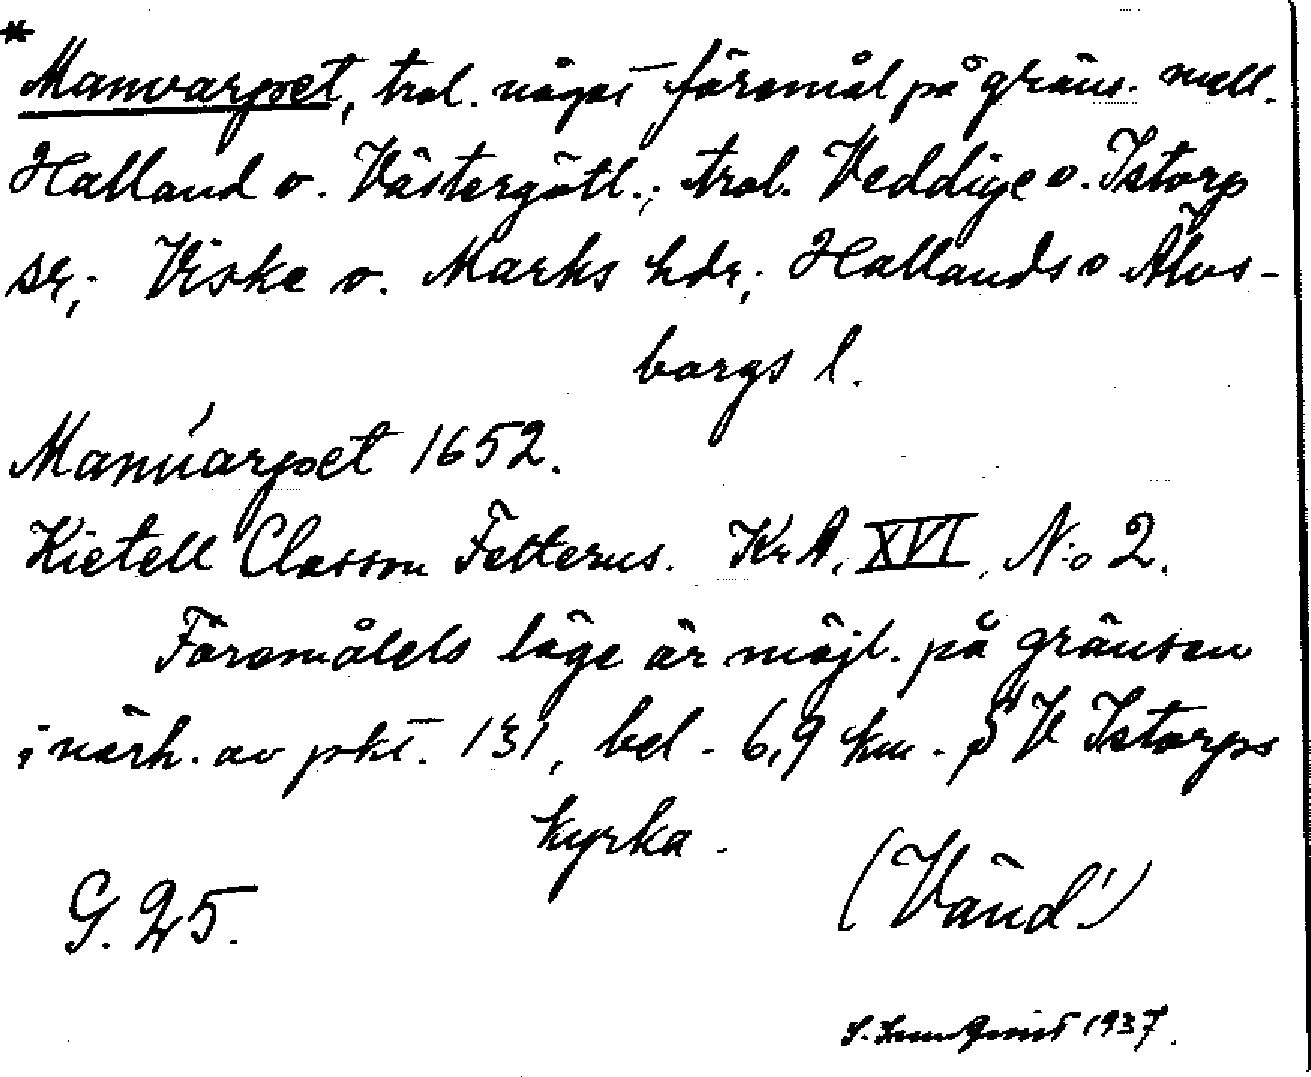 *
Manvarpet, trol. något föremål på gräns. mell.
Halland o. Västergötl.; trol. Veddige o. Istorp
sr; Viske o. Marks hdr; Hallands o Älvs-
borgs l.
Manúarpet 1652.
Kietell Classon Felterus. KrA, XVI, No 2.
Föremålets läge är möjl. på gränsen
i närh. av pkt. 131, bel. 6,9 km. S V Istorps
kyrka.
G. 25.
(Vänd!)
1937.